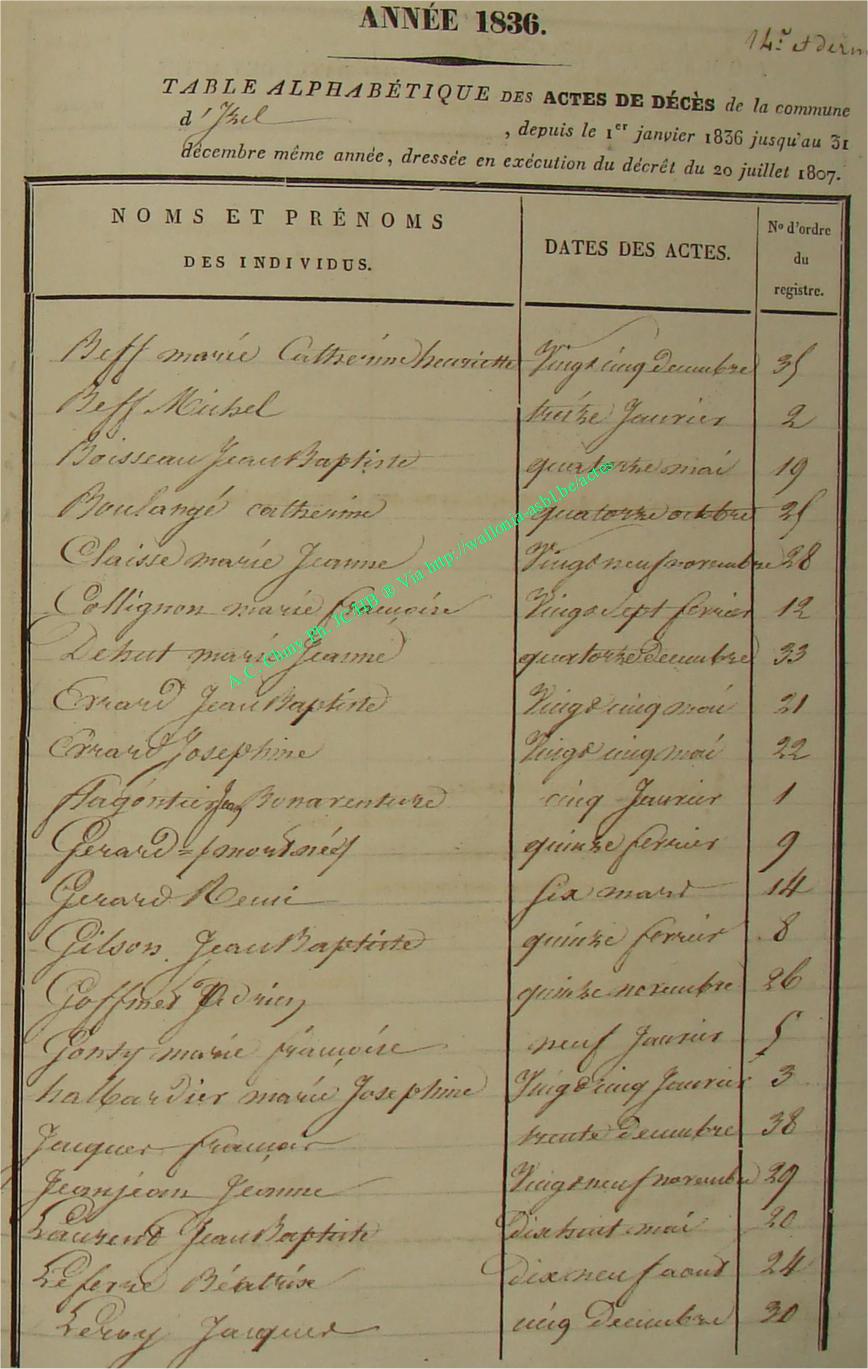 ANNÉE 1836.
14.e et dern
TABLE ALPHABÉTIQUE DES ACTES DE DÉCÈS de la commune
d'Izel , depuis le 1er janvier 1836 jusqu'au 31
décembre même année, dressée en exécution du décrêt du 20 juillet 1807.
NOMS ET PRÉNOMS DES INDIVIDUS. DATES DES ACTES. No d'ordre du registre.
Beff marie Catherine henriette Vingt cinq decembre 35
Beff Michel treize Janvier 2
Boisseau Jean Baptiste quatorze mai 19
Boulangé catherine quatorze octobre 25
Claisse marie Jeanne Vingt neuf novembre 28
Collignon marie françoise Vingt sept fevrier 12
Dehut marie Jeanne quatorze Decembre 33
Errard Jean Baptiste Vingt cinq mai 21
Errard Josephine Vingt cinq mai 22
flagontier Jean Bonaventure cinq Janvier 1
Gerard = (mort né) quinze fevrier 9
Gerard Remi six mars 14
Gilson Jean Baptiste quinze fevrier 8
Goffinet Adrien quinze novembre 26
Gonsy marie françoise neuf Janvier 5
halbardier marie Josephine Vingt cinq Janvier 3
Jacques françois trente decembre 38
Jeanjean Jeanne Vingt neuf novembre 29
Laurent Jean Baptiste Dix huit mai 20
Lefevre Béatrise dix neuf aout 24
Leroy Jacques cinq Decembre 30
A.C. Chiny Ph. JCHB ® Via http://wallonia-asbl.be/actes